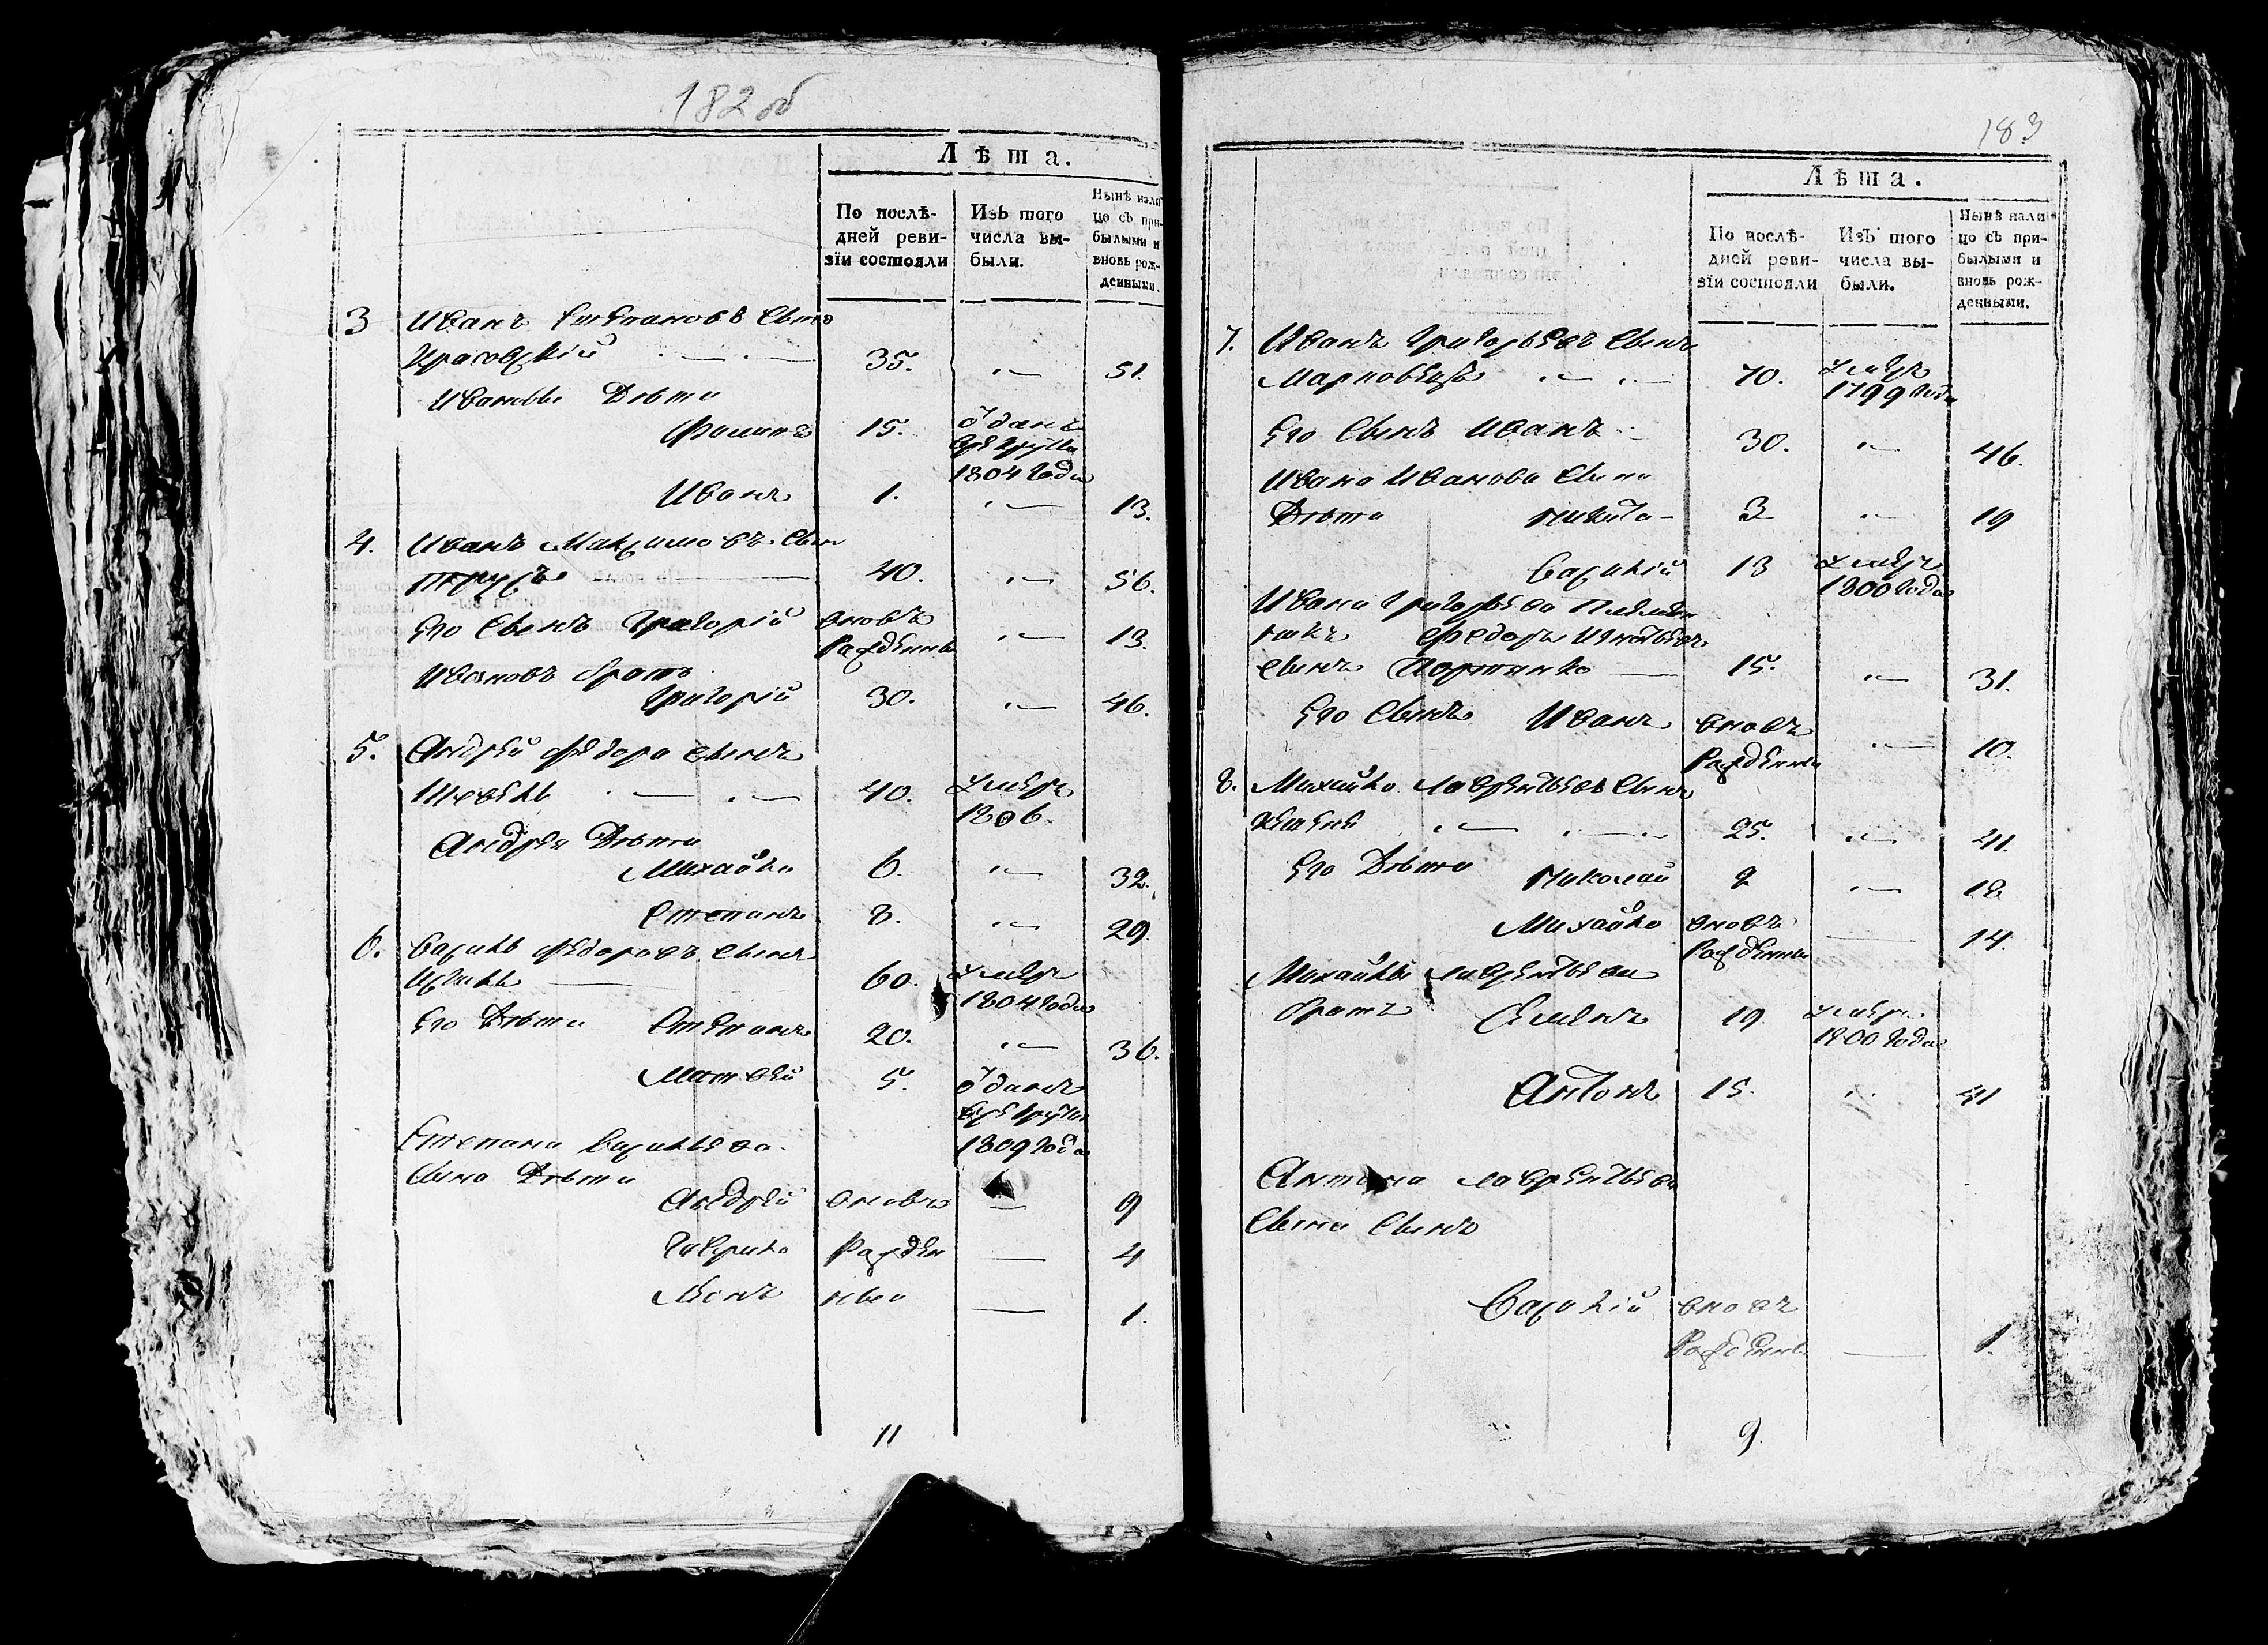 182 об
Лѣта.
По послѣ-
дней реви-
зіи состояли
Изъ того
числа вы-
были.
Нынѣ нали
цо съ при-
былыми и
вновь рож-
денными.
3 Иванъ Степановъ Сынъ
35. 51.
Ивановы Дѣти
Филипъ 15. Ѿданъ
врекруты
1804 года
Иванъ 1. 13.
4. Иванъ Максимовъ Сынъ
40. 56.
Его Сынъ Григорій вновь
Рожденны 13.
Ивановъ братъ
Григорій 30. 46.
5. Андрей Федора сынъ
Шевень 40. умеръ
1806.
Андрея Дѣти
Михайло 6. 32.
Степанъ 8. 29.
6. Василь Федоровъ сынъ
60. умеръ
1804 года
Его Дѣти Степанъ 20. 36.
Матвей 5. Ѿданъ
врекруты
1809 года
Степана Васильева
Сына Дѣти
Андрей вновь 9
Гаврило Рожден 4
ные 1.
11
183
Лѣта.
По послѣ-
дней реви-
зіи состояли
Изъ того
числа вы-
были.
Нынѣ нали
цо съ при-
былыми и
вновь рож-
денными.
7. Иванъ Григорьевъ Сынъ
70. умеръ
1799 года
Его Сынъ Иванъ 30. 46.
Ивана Иванова Сына
Дѣти Никита 3 19
Василій 13 умеръ
1800 года
Ивана Григорьева Племян
никъ Федоръ Игнатьевъ
сынъ 15. 31.
Его Сынъ Иванъ вновь
Рожденны 10.
8. Михайло Лаврентьевъ Сынъ
25. 41.
Его Дѣти Николай 2 18
Михайло вновь
Рожденны 14.
Михайлы Лаврентьева
братъ Семенъ 19 умеръ
1800 года
Антонъ 15. 41
Антона Лаврентьева
Сына Сынъ
Василій вновь
Рожденны 1.
9.